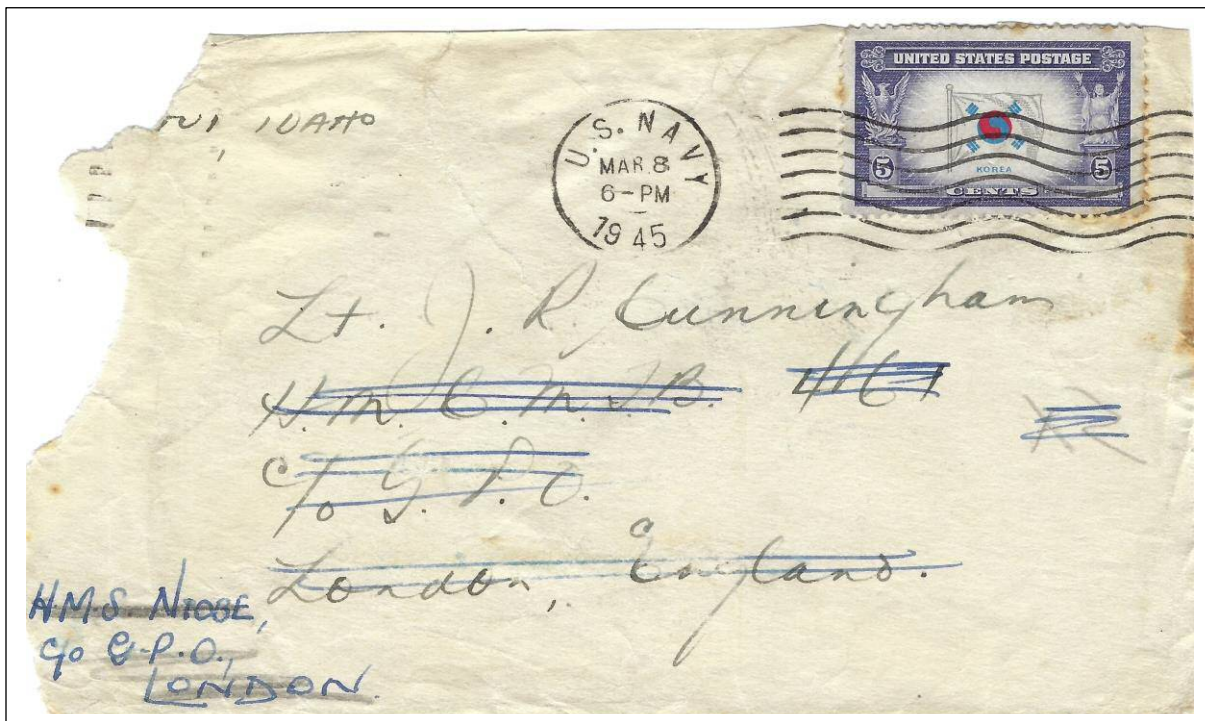 IDAHO
U.S. NAVY
MAR 8
6-PM
1945
UNITED STATES POSTAGE
5 5
KOREA
CENTS
Lt. J. R. Cunningham
H.M.C.M.T.B. 461
c/o G.P.O.
London, England.
H.M.S. NIOBE,
c/o G.P.O.,
LONDON.